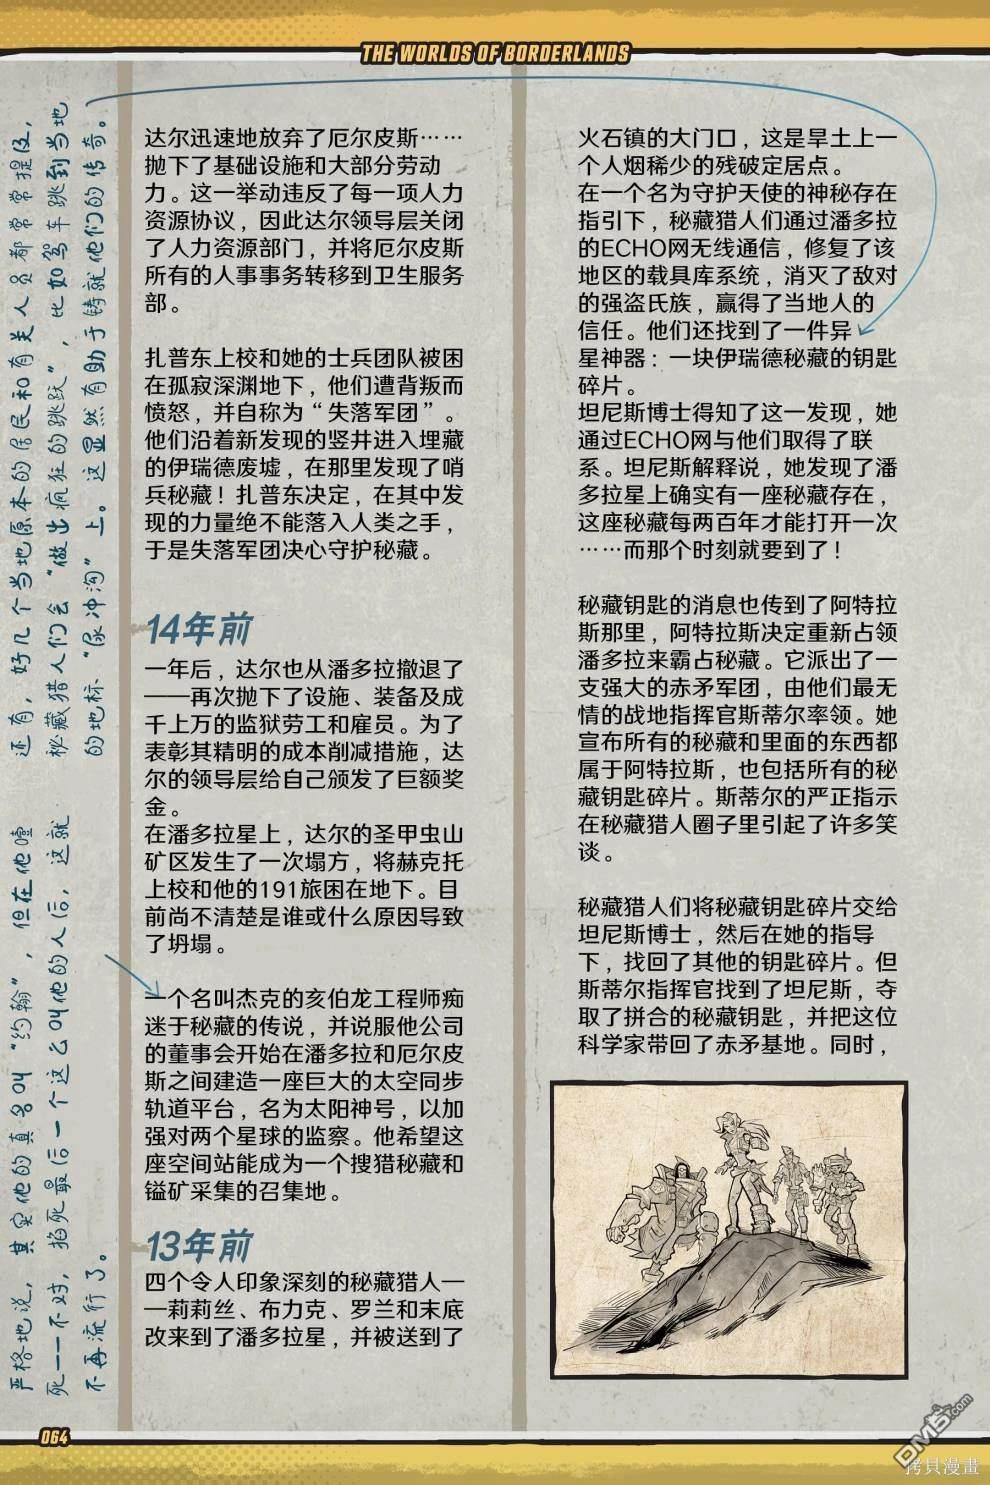 THE WORLDS OF BORDERLANDS
达尔迅速地放弃了厄尔皮斯……
抛下了基础设施和大部分劳动
力。这一举动违反了每一项人力
资源协议，因此达尔领导层关闭
了人力资源部门，并将厄尔皮斯
所有的人事事务转移到卫生服务
部。
扎普东上校和她的士兵团队被困
在孤寂深渊地下，他们遭背叛而
愤怒，并自称为“失落军团”。
他们沿着新发现的竖井进入埋藏
的伊瑞德废墟，在那里发现了哨
兵秘藏！扎普东决定，在其中发
现的力量绝不能落入人类之手，
于是失落军团决心守护秘藏。
14年前
一年后，达尔也从潘多拉撤退了
——再次抛下了设施、装备及成
千上万的监狱劳工和雇员。为了
表彰其精明的成本削减措施，达
尔的领导层给自己颁发了巨额奖
金。
在潘多拉星上，达尔的圣甲虫山
矿区发生了一次塌方，将赫克托
上校和他的191旅困在地下。目
前尚不清楚是谁或什么原因导致
了坍塌。
一个名叫杰克的亥伯龙工程师痴
迷于秘藏的传说，并说服他公司
的董事会开始在潘多拉和厄尔皮
斯之间建造一座巨大的太空同步
轨道平台，名为太阳神号，以加
强对两个星球的监察。他希望这
座空间站能成为一个搜猎秘藏和
镒矿采集的召集地。
13年前
四个令人印象深刻的秘藏猎人—
—莉莉丝、布力克、罗兰和末底
改来到了潘多拉星，并被送到了
火石镇的大门口，这是旱土上一
个人烟稀少的残破定居点。
在一个名为守护天使的神秘存在
指引下，秘藏猎人们通过潘多拉
的ECHO网无线通信，修复了该
地区的载具库系统，消灭了敌对
的强盗氏族，赢得了当地人的
信任。他们还找到了一件异
星神器：一块伊瑞德秘藏的钥匙
碎片。
坦尼斯博士得知了这一发现，她
通过ECHO网与他们取得了联
系。坦尼斯解释说，她发现了潘
多拉星上确实有一座秘藏存在，
这座秘藏每两百年才能打开一次
……而那个时刻就要到了！
秘藏钥匙的消息也传到了阿特拉
斯那里，阿特拉斯决定重新占领
潘多拉来霸占秘藏。它派出了一
支强大的赤矛军团，由他们最无
情的战地指挥官斯蒂尔率领。她
宣布所有的秘藏和里面的东西都
属于阿特拉斯，也包括所有的秘
藏钥匙碎片。斯蒂尔的严正指示
在秘藏猎人圈子里引起了许多笑
谈。
秘藏猎人们将秘藏钥匙碎片交给
坦尼斯博士，然后在她的指导
下，找回了其他的钥匙碎片。但
斯蒂尔指挥官找到了坦尼斯，夺
取了拼合的秘藏钥匙，并把这位
科学家带回了赤矛基地。同时，
还有，好几个当地原本的居民和有关人员都常常提及，
秘藏猎人们会“做出疯狂的跳跃”，比如驾车跳到当地
的地标“尿冲沟”上。这显然有助于铸就他们的传奇。
严格地说，其实他的真名叫“约翰”，但在他噎
死——不对，掐死最后一个这么叫他的人后，这就
不再流行了。
064
DM5.com
拷貝漫畫